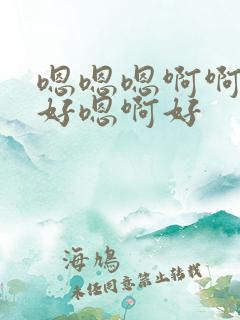 嗯嗯嗯啊啊
好嗯啊好
海鳩
未经同意禁止转载